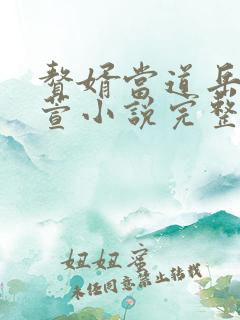 贅婿當道岳
萱小說完整
妞妞蜜
未经同意禁止转载